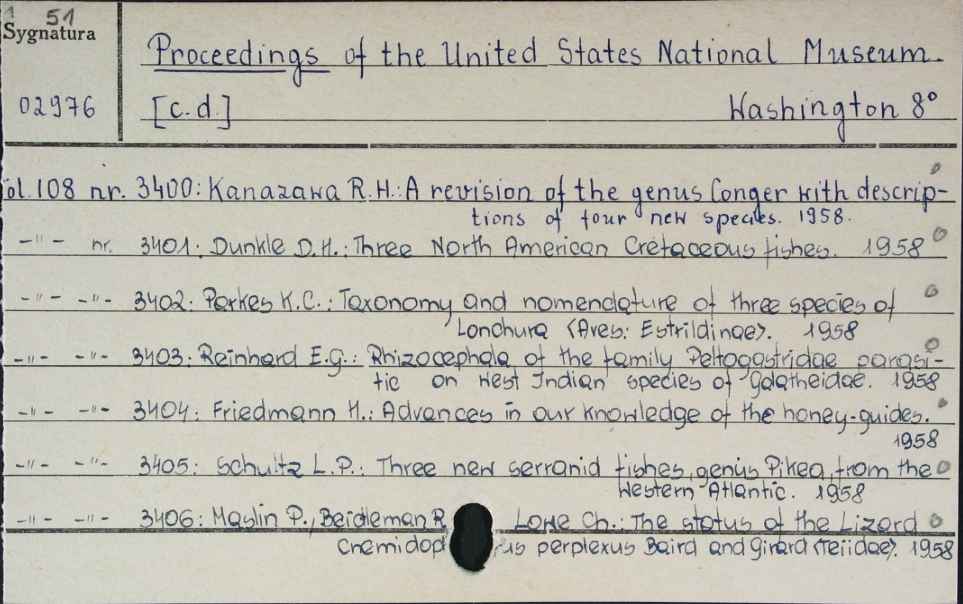 1 51
Sygnatura
Proceedings of the United States National Museum.
02976 [c.d.] Washington 8°
ol. 108 nr. 3400: Kanazawa R.H.: A revision of the genus Conger with descrip-
tions of four new species. 1958.
-"- nr. 3401: Dunkle D.H.: Three North American Cretaceous fishes. 1958
-"- -"- 3402: Parkes K.C.: Taxonomy and nomenclature of three species of
Lonchura (Aves: Estrildinae). 1958
-"- -"- 3403: Reinhard E.G.: Rhizocephala of the family Peltogastridae parasi-
tic on West Indian species of Galatheidae. 1958
-"- -"- 3404: Friedmann H.: Advances in our knowledge of the honey-guides.
1958
-"- -"- 3405: Schultz L.P.: Three new serranid fishes, genus Pikea, from the
Western Atlantic. 1958
-"- -"- 3406: Maslin P., Beidleman R Lowe Ch.: The status of the Lizard
Cnemidop rus perplexus Baird and Girard (Teiidae). 1958